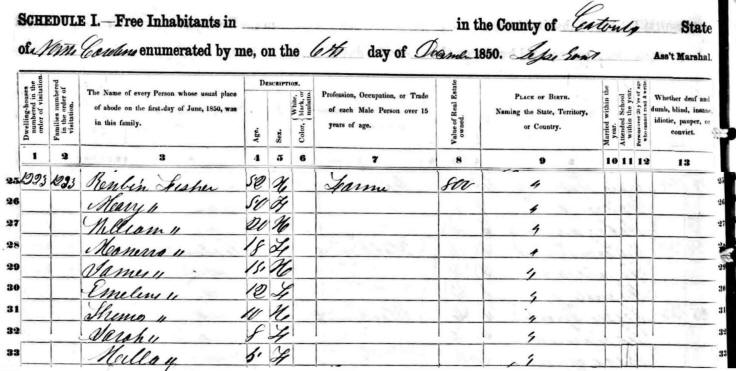 SCHEDULE I.—Free Inhabitants in in the County of State
of North enumerated by me, on the 6th day of 1850. Ass't Marshal.
Dwelling-houses numbered in the order of visitation.
Families numbered in the order of visitation.
The Name of every Person whose usual place of abode on the first day of June, 1850, was in this family.
DESCRIPTION.
Age.
Sex.
Color, White, black, or mulatto.
Profession, Occupation, or Trade of each Male Person over 15 years of age.
Value of Real Estate owned.
PLACE OF BIRTH. Naming the State, Territory, or Country.
Married within the year.
Attended School within the year.
Persons over 20 y'rs of age who cannot read & write.
Whether deaf and dumb, blind, insane, idiotic, pauper, or convict.
1 2 3 4 5 6 7 8 9 10 11 12 13
25 1223 1223 Reubin Fisher 52 M 800 "
26 Mary " 50 F "
27 William " 20 M "
28 " 18 F "
29 James " 15 M "
30 Emeline " 12 F "
31 " 10 M "
32 Sarah " 8 F "
33 5 F "